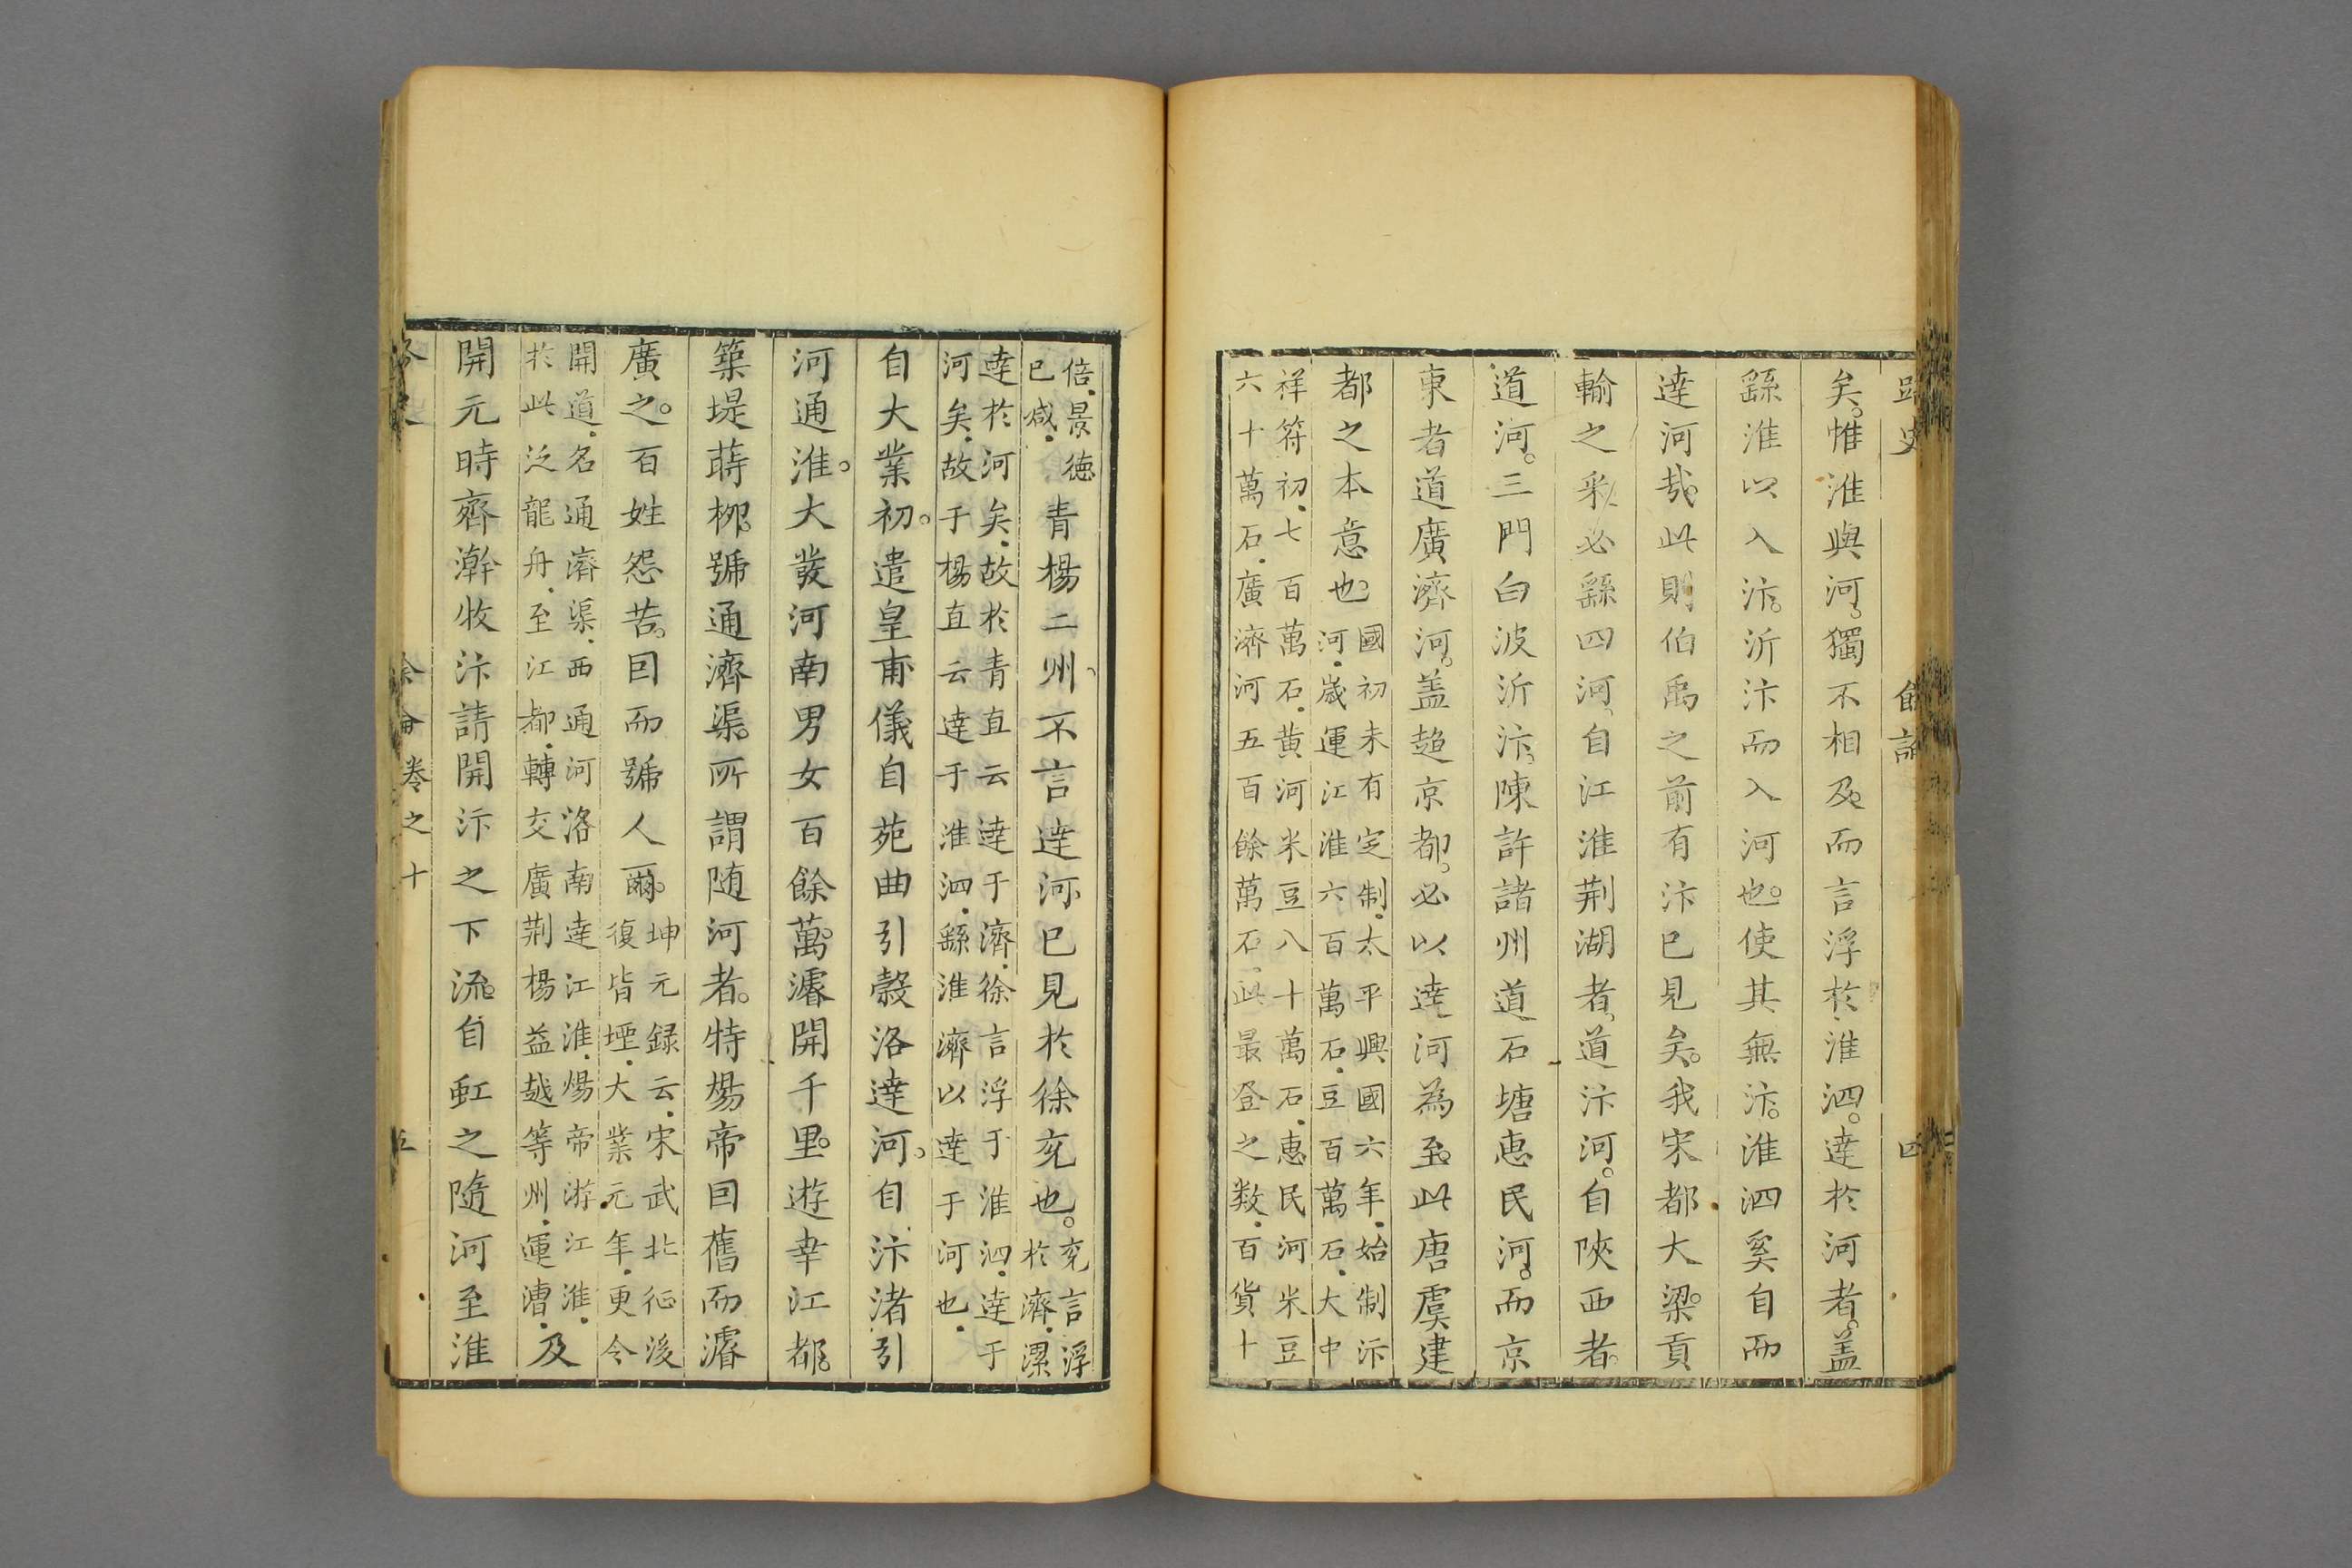 路史 餘論 四
矣惟淮與河獨不相及而言浮於淮泗達於河者蓋
繇淮以入汴泝汴而入河也使其無汴淮泗奚自而
達河哉此則伯禹之前有汴已見矣我宋都大梁貢
輸之來必繇四河自江淮荆湖者道汴河自陝西者
道河三門白波泝汴陳許諸州道石塘惠民河而京
東者道廣濟河蓋趨京都必以達河為至此唐虞建
都之本意也國初未有定制太平興國六年始制汴
河歲運江淮六百萬石豆百萬石大中
祥符初七百萬石黄河米豆八十萬石惠民河米豆
六十萬石廣濟河五百餘萬石此最登之数百貨十
倍景徳
已減青楊二州不言達河已見於徐兖也兖言浮
於濟漯
達於河矣故於青直云達于濟徐言浮于淮泗達于
河矣故于楊直云達于淮泗繇淮濟以達于河也
自大業初遣皇甫儀自苑曲引榖洛達河自汴渚引
河通淮大發河南男女百餘萬濬開千里遊幸江都
築堤蒔栁號通濟渠所謂随河者特煬帝因舊而濬
廣之百姓怨苦因而號人爾坤元録云宋武北征後
復皆堙大業元年更令
開道名通濟渠西通河洛南達江淮煬帝游江淮
於此泛龍舟至江都轉交廣荆楊益越等州運漕及
開元時齊澣牧汴請開汴之下流自虹之隨河至淮
路史 餘論卷之十 五